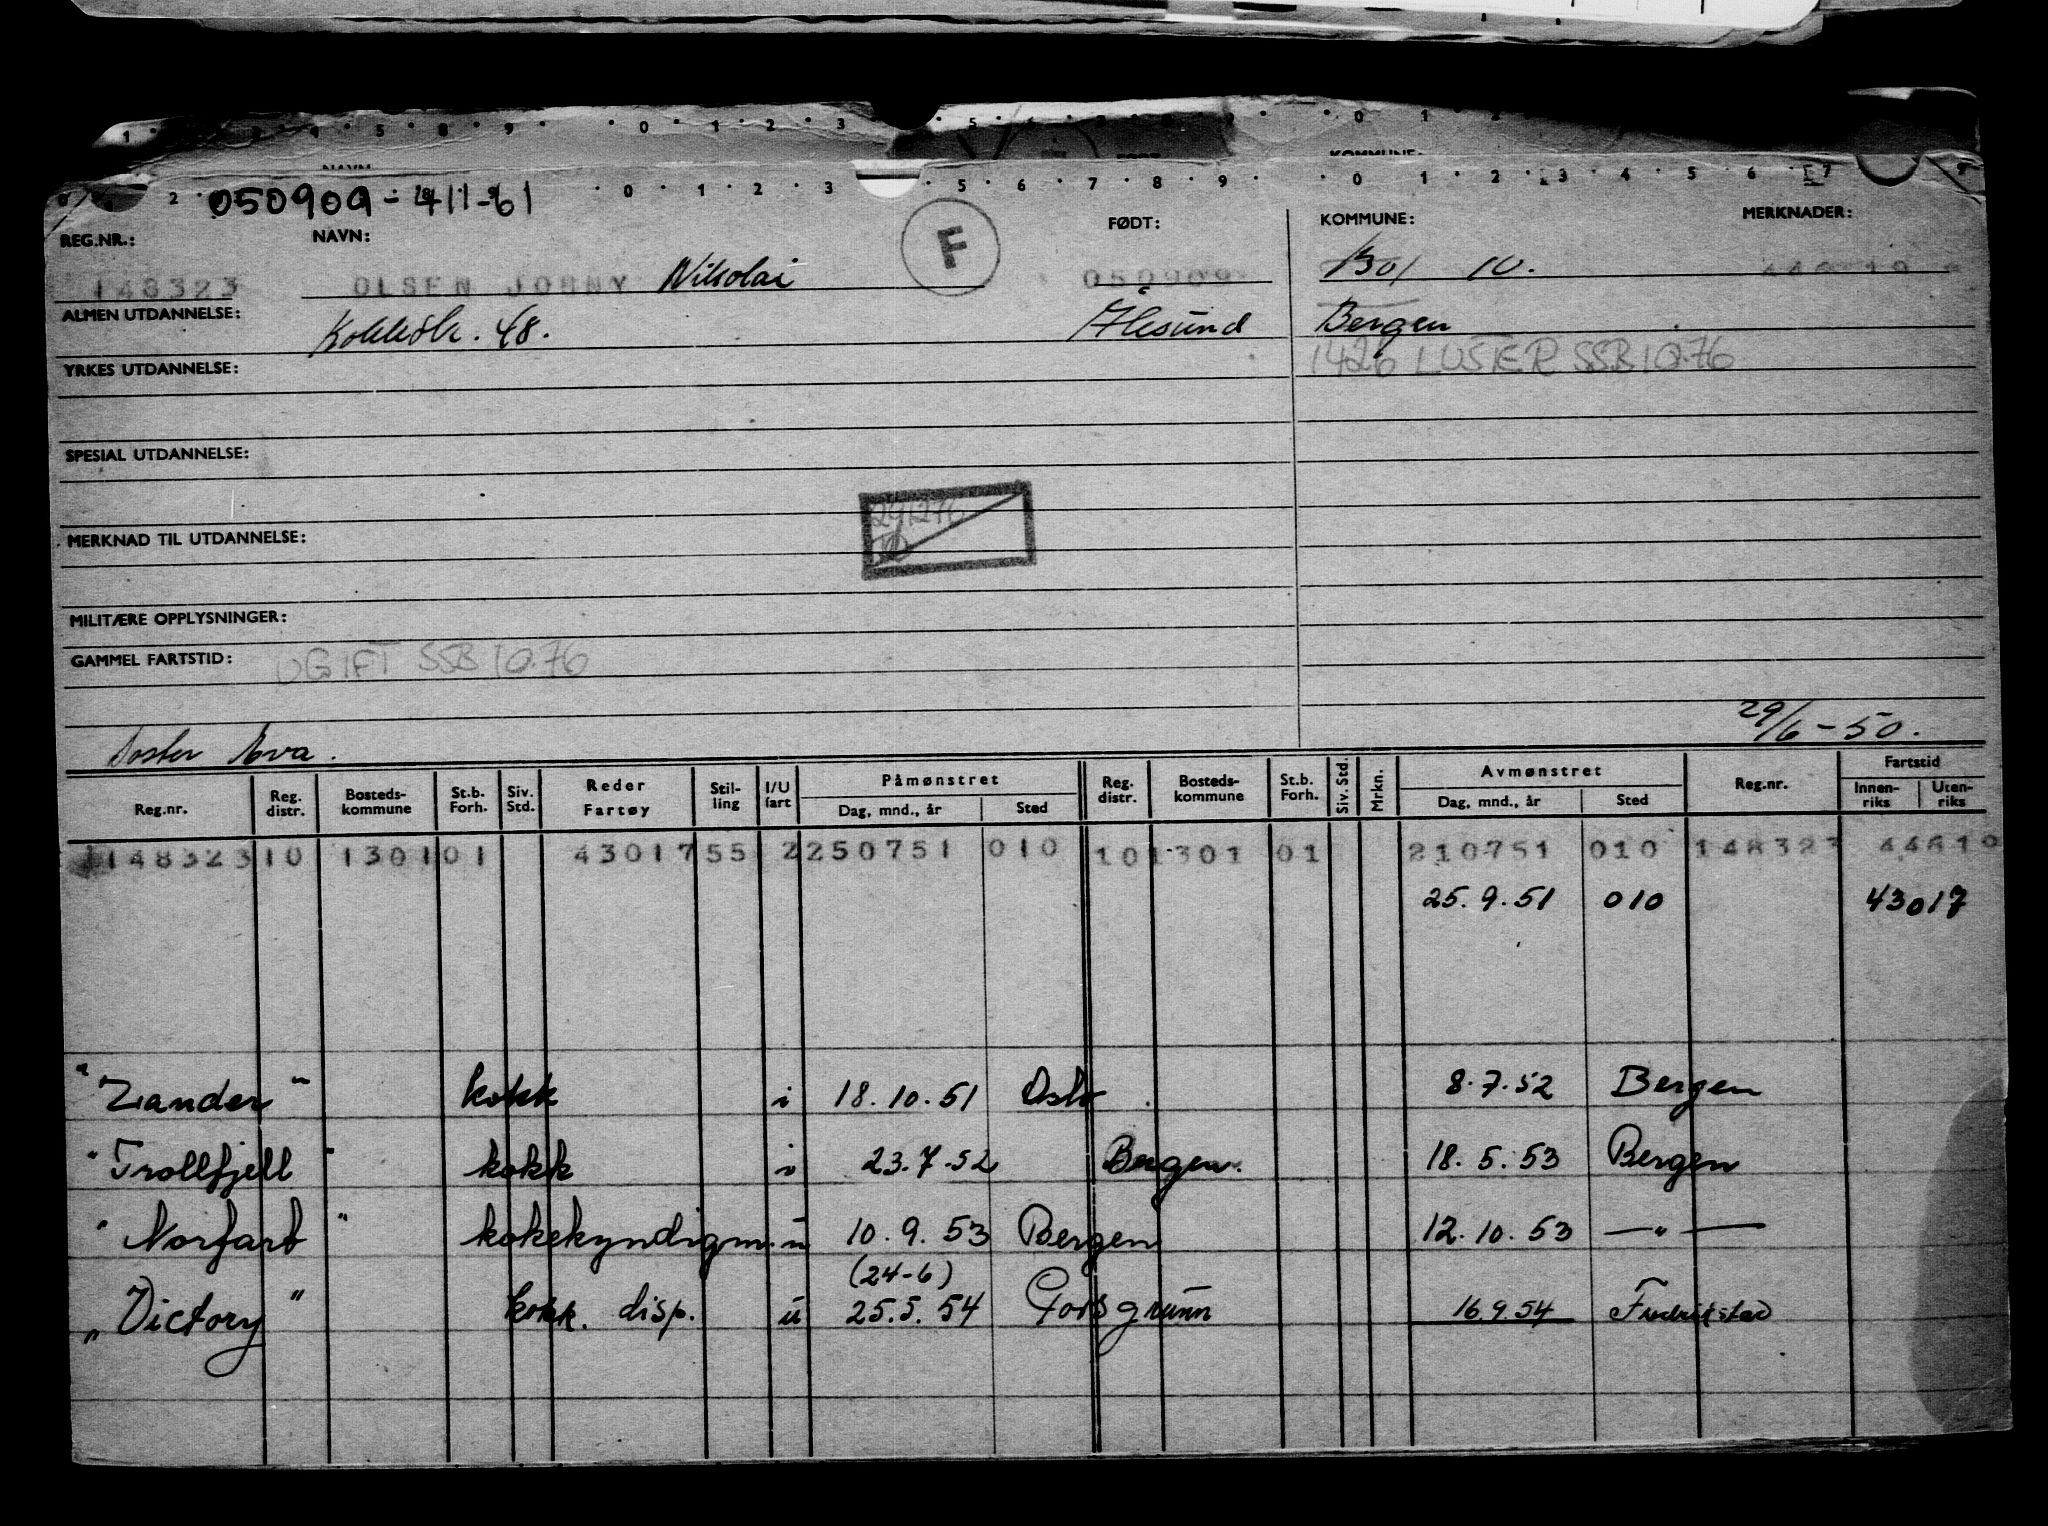 050909 - 411-61
REG.NR.: NAVN: F FØDT: KOMMUNE: MERKNADER:
148323 OLSEN JOHNY Nikolai 050909 1301 10.
ALMEN UTDANNELSE: Kokksk. 48. Ålesund Bergen
YRKES UTDANNELSE: 1426 LUSTER SSB 10.76
SPESIAL UTDANNELSE:
MERKNAD TIL UTDANNELSE:
MILITÆRE OPPLYSNINGER:
GAMMEL FARTSTID: UGIFT SSB 10.76
29/6-50.
Søster Eva.
Reg.nr. Reg. distr. Bosteds-kommune St.b. Forh. Siv. Std. Reder Fartøy Stil-ling I/U fart Påmønstret Dag, mnd., år Sted Reg. distr. Bosteds-kommune St.b. Forh. Siv. Std. Mrkn. Avmønstret Dag, mnd., år Sted Reg.nr. Fartstid Innen-riks Uten-riks
148323 10 1301 01 43017 55 2 250751 010 10 1301 01 210751 010 148323 44610
25.9.51 010 43017
"Zander" kokk i 18.10.51 Oslo 8.7.52 Bergen
"Trollfjell" kokk i 23.7.52 Bergen. 18.5.53 Bergen
"Norfart" kokekyndigm. u 10.9.53 Bergen 12.10.53 — " —
(24-6)
"Victory" kokk. disp. u 25.5.54 Porsgrunn 16.9.54 Fredrikstad